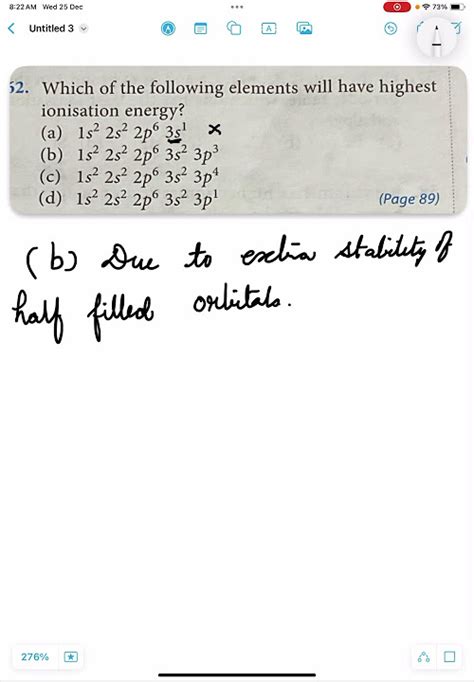 8:22 AM Wed 25 Dec
73%
Untitled 3
A
52. Which of the following elements will have highest
ionisation energy?
(a) 1s² 2s² 2p⁶ 3s¹ ×
(b) 1s² 2s² 2p⁶ 3s² 3p³
(c) 1s² 2s² 2p⁶ 3s² 3p⁴
(d) 1s² 2s² 2p⁶ 3s² 3p¹ (Page 89)
(b) Due to extra stability of
half filled orbitals.
276%